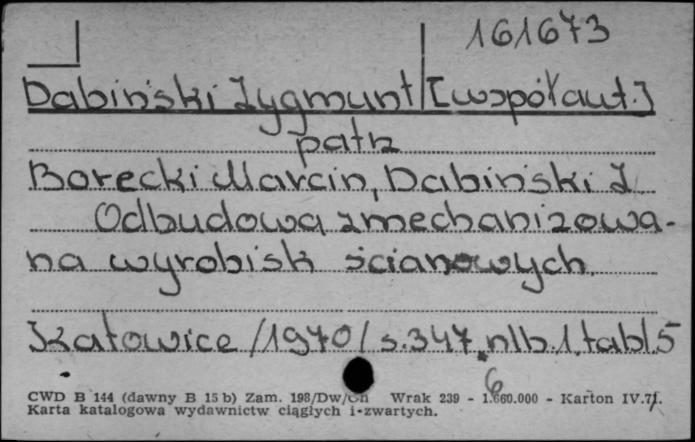 161673
Dabiński Zygmunt [współaut.]
patrz
Borecki Marcin, Dabiński Z
Odbudowa zmechanizowa-
na wyrobisk ścianowych.
Katowice /1970/ s.347, nlb.1, tabl.5
6
CWD B 144 (dawny B 15 b) Zam. 198/Dw/ Wrak 239 - 1.660.000 - Karton IV.71.
Karta katalogowa wydawnictw ciągłych i zwartych.